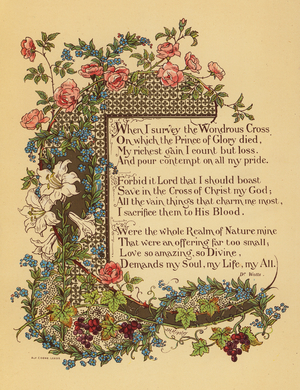 When I survey the Wondrous Cross
On which the Prince of Glory died,
My richest gain I count but loss.
And pour contempt on all my pride.
Forbid it Lord that I should boast
Save in the Cross of Christ my God;
All the vain things that charm me most,
I sacrifice them to His Blood.
Were the whole Realm of Nature mine
That were an offering far too small;
Love so amazing, so Divine,
Demands my Soul, my Life, my All.
Dr Watts